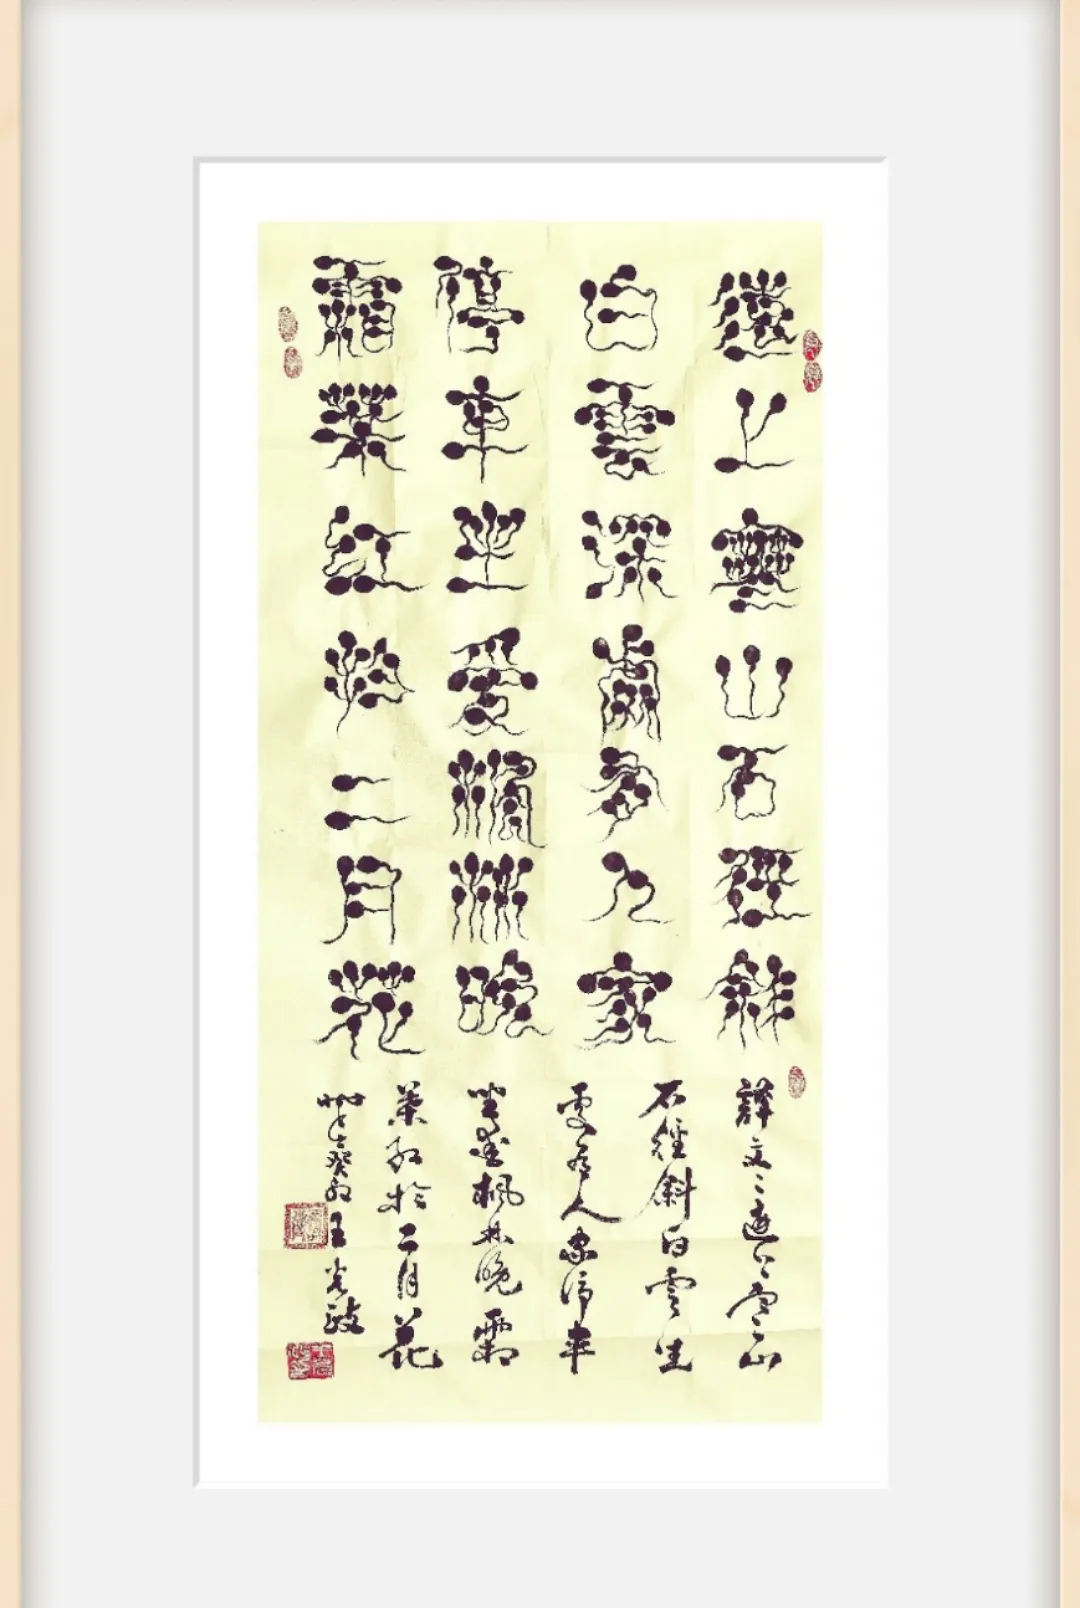 遠上寒山石徑斜
白雲深處有人家
停車坐愛楓林晚
霜葉紅於二月花
譯文:遠上寒山
石徑斜白雲生
處有人家停車
坐愛楓林晚霜
葉紅於二月花
癸卯王